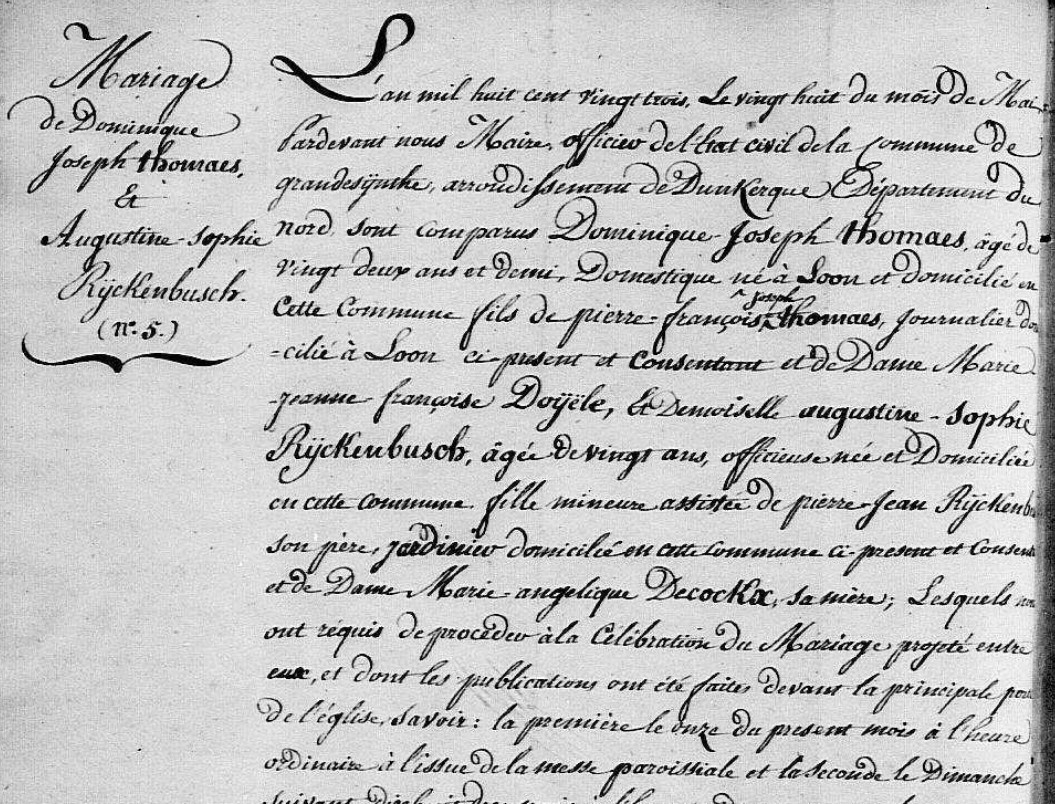 Mariage
de Dominique
Joseph thomaes,
&
Augustine-Sophie
Rÿckenbusch.
(nº. 5.)
L'an mil huit cent vingt trois, Le vingt huit du mois de Mai
Pardevant nous Maire, officier de l'Etat civil de la Commune de
grandesÿnthe, arrondissement de Dunkerque, Département du
nord, sont comparus Dominique-Joseph thomaes, âgé de
vingt deux ans et demi, Domestique né à Loon et domicilié en
Cette Commune fils de pierre-françois, Joseph thomaes, Journalier do
=cilié à Loon ci-présent et Consentant et de Dame Marie
-jeanne françoise Doÿële, & Demoiselle augustine-Sophie
Rÿckenbusch, âgée de vingt ans, officieuse née et Domiciliée
en cette commune. fille mineure assistée de pierre-Jean Rÿckenb
son père, jardinier domicilié en cette Commune ci-present et Consent
et de Dame Marie-angelique Decockx, sa mère; Lesquels
ont réquis de procéder à la Célébration du Mariage projeté entre
eux, et dont les publications ont été faites devant la principale po
de l'église, Savoir: la première le onze du present mois à l'heure
ordinaire à l'issue de la messe paroissiale et la seconde le Dimanche
suivant